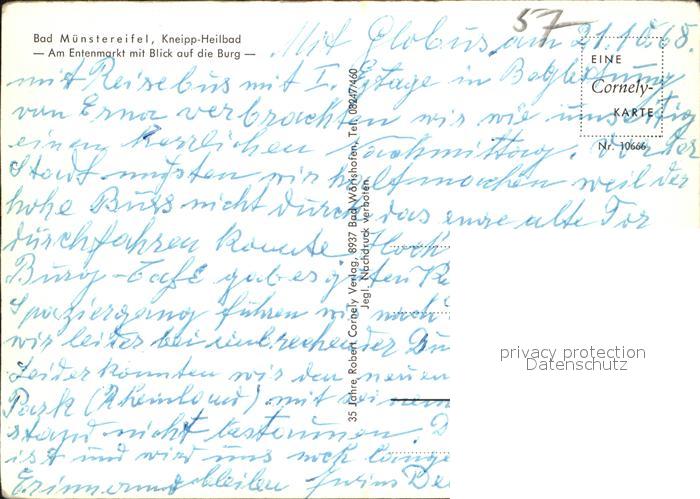 Bad Münstereifel, Kneipp-Heilbad
— Am Entenmarkt mit Blick auf die Burg —
57
EINE
Cornely-
KARTE
Nr. 10666
35 Jahre Robert Cornely Verlag, 8937 Bad Wörishofen, Tel. 08247/460
Jegl. Nachdruck verboten.
Mit Globus am 21.10.68.
mit Reisebus mit I. Etage in Begleitung
von Erna verbrachten wir wie
einen herrlichen Nachmittag. Vor der
Stadt mußten wir halt machen weil der
hohe Buss nicht durch das enge alte Tor
durchfahren konnte. Hoch
Burg-Café gab es guten Ka
Spaziergang führen wir nach
wir leider bei einbrechender Du
Leider konnten wir den neuen
Park (Rheinland) mit seinem
stand nicht bestaunen. D
ist und wird uns noch lange
Erinnerung bleiben
privacy protection
Datenschutz